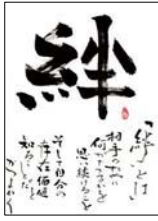 絆
「絆」とは
相手の為に
何ができるかと
思い続けることを
そして自分の
存在価値
知ること